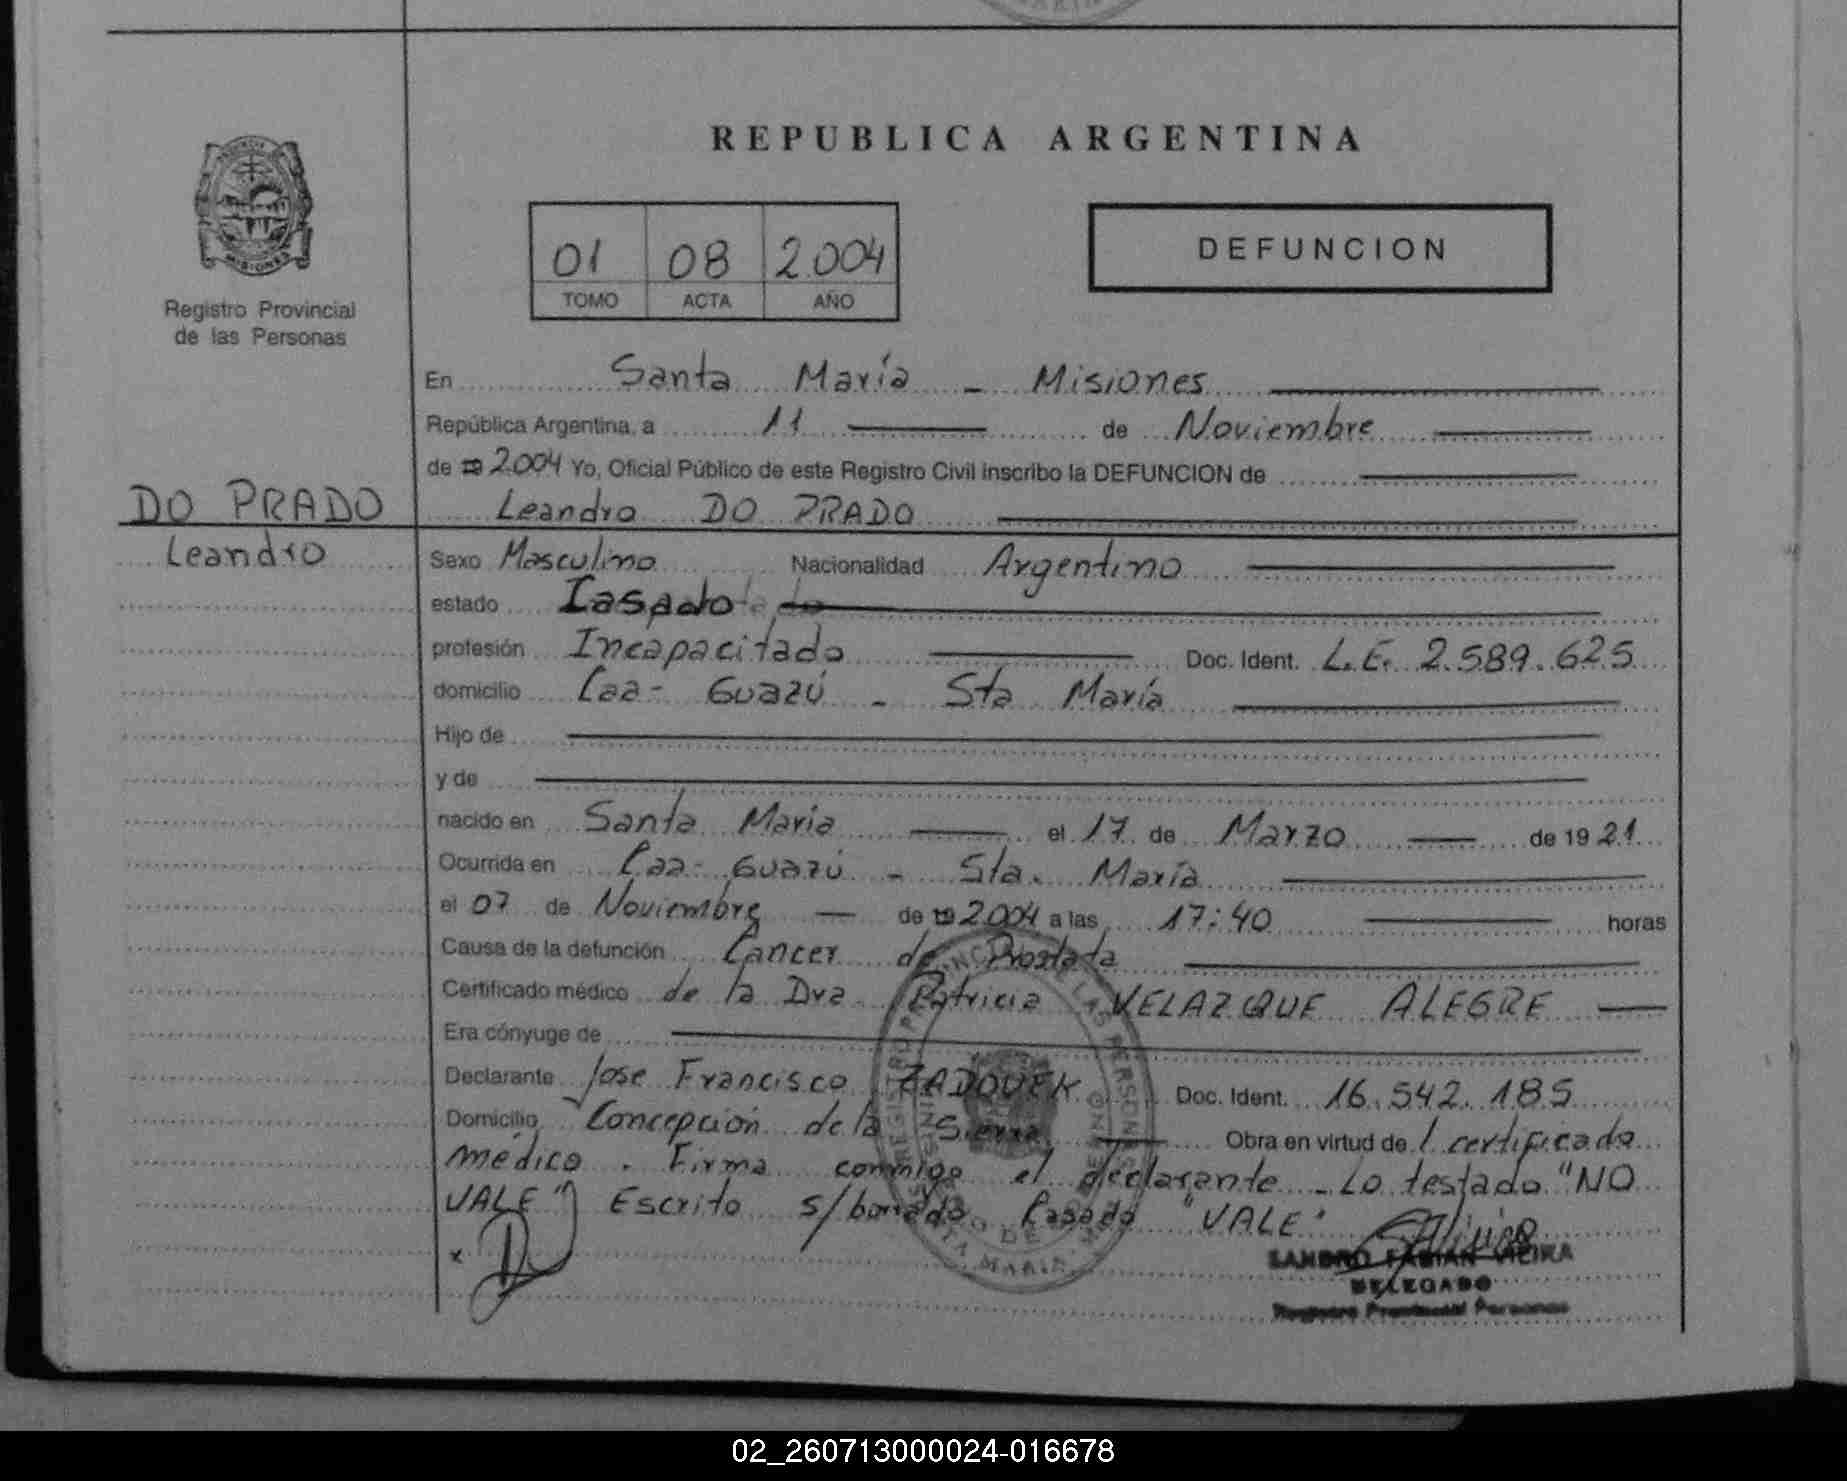 REPUBLICA ARGENTINA
01 08 2.004
TOMO ACTA AÑO
DEFUNCION
MISIONES
Registro Provincial
de las Personas
En Santa María - Misiones
República Argentina, a 11 de Noviembre
de 19 2.004 Yo, Oficial Público de este Registro Civil inscribo la DEFUNCION de
DO PRADO
Leandro DO PRADO
Leandro
Sexo Masculino Nacionalidad Argentino
estado Casado
profesión Incapacitado Doc. Ident. L.E. 2.589.625
domicilio Caa-Guazú - Sta María
Hijo de
y de
nacido en Santa María el 17 de Marzo de 1921
Ocurrida en Caa-Guazú - Sta. María
el 07 de Noviembre de 19 2.004 a las 17:40 horas
Causa de la defunción Cancer de Prostata
Certificado médico de la Dra Patricia VELAZQUE ALEGRE
Era cónyuge de
Declarante Jose Francisco ZADOUEK Doc. Ident. 16.542.185
Domicilio Concepción de la Sierra Obra en virtud de l certificado
médico. Firma conmigo el declarante - Lo testado "NO
VALE" Escrito s/borrado Casado "VALE"
SANDRO FABIAN VIEIRA
DELEGADO
Registro Provincial Personas
02_260713000024-016678